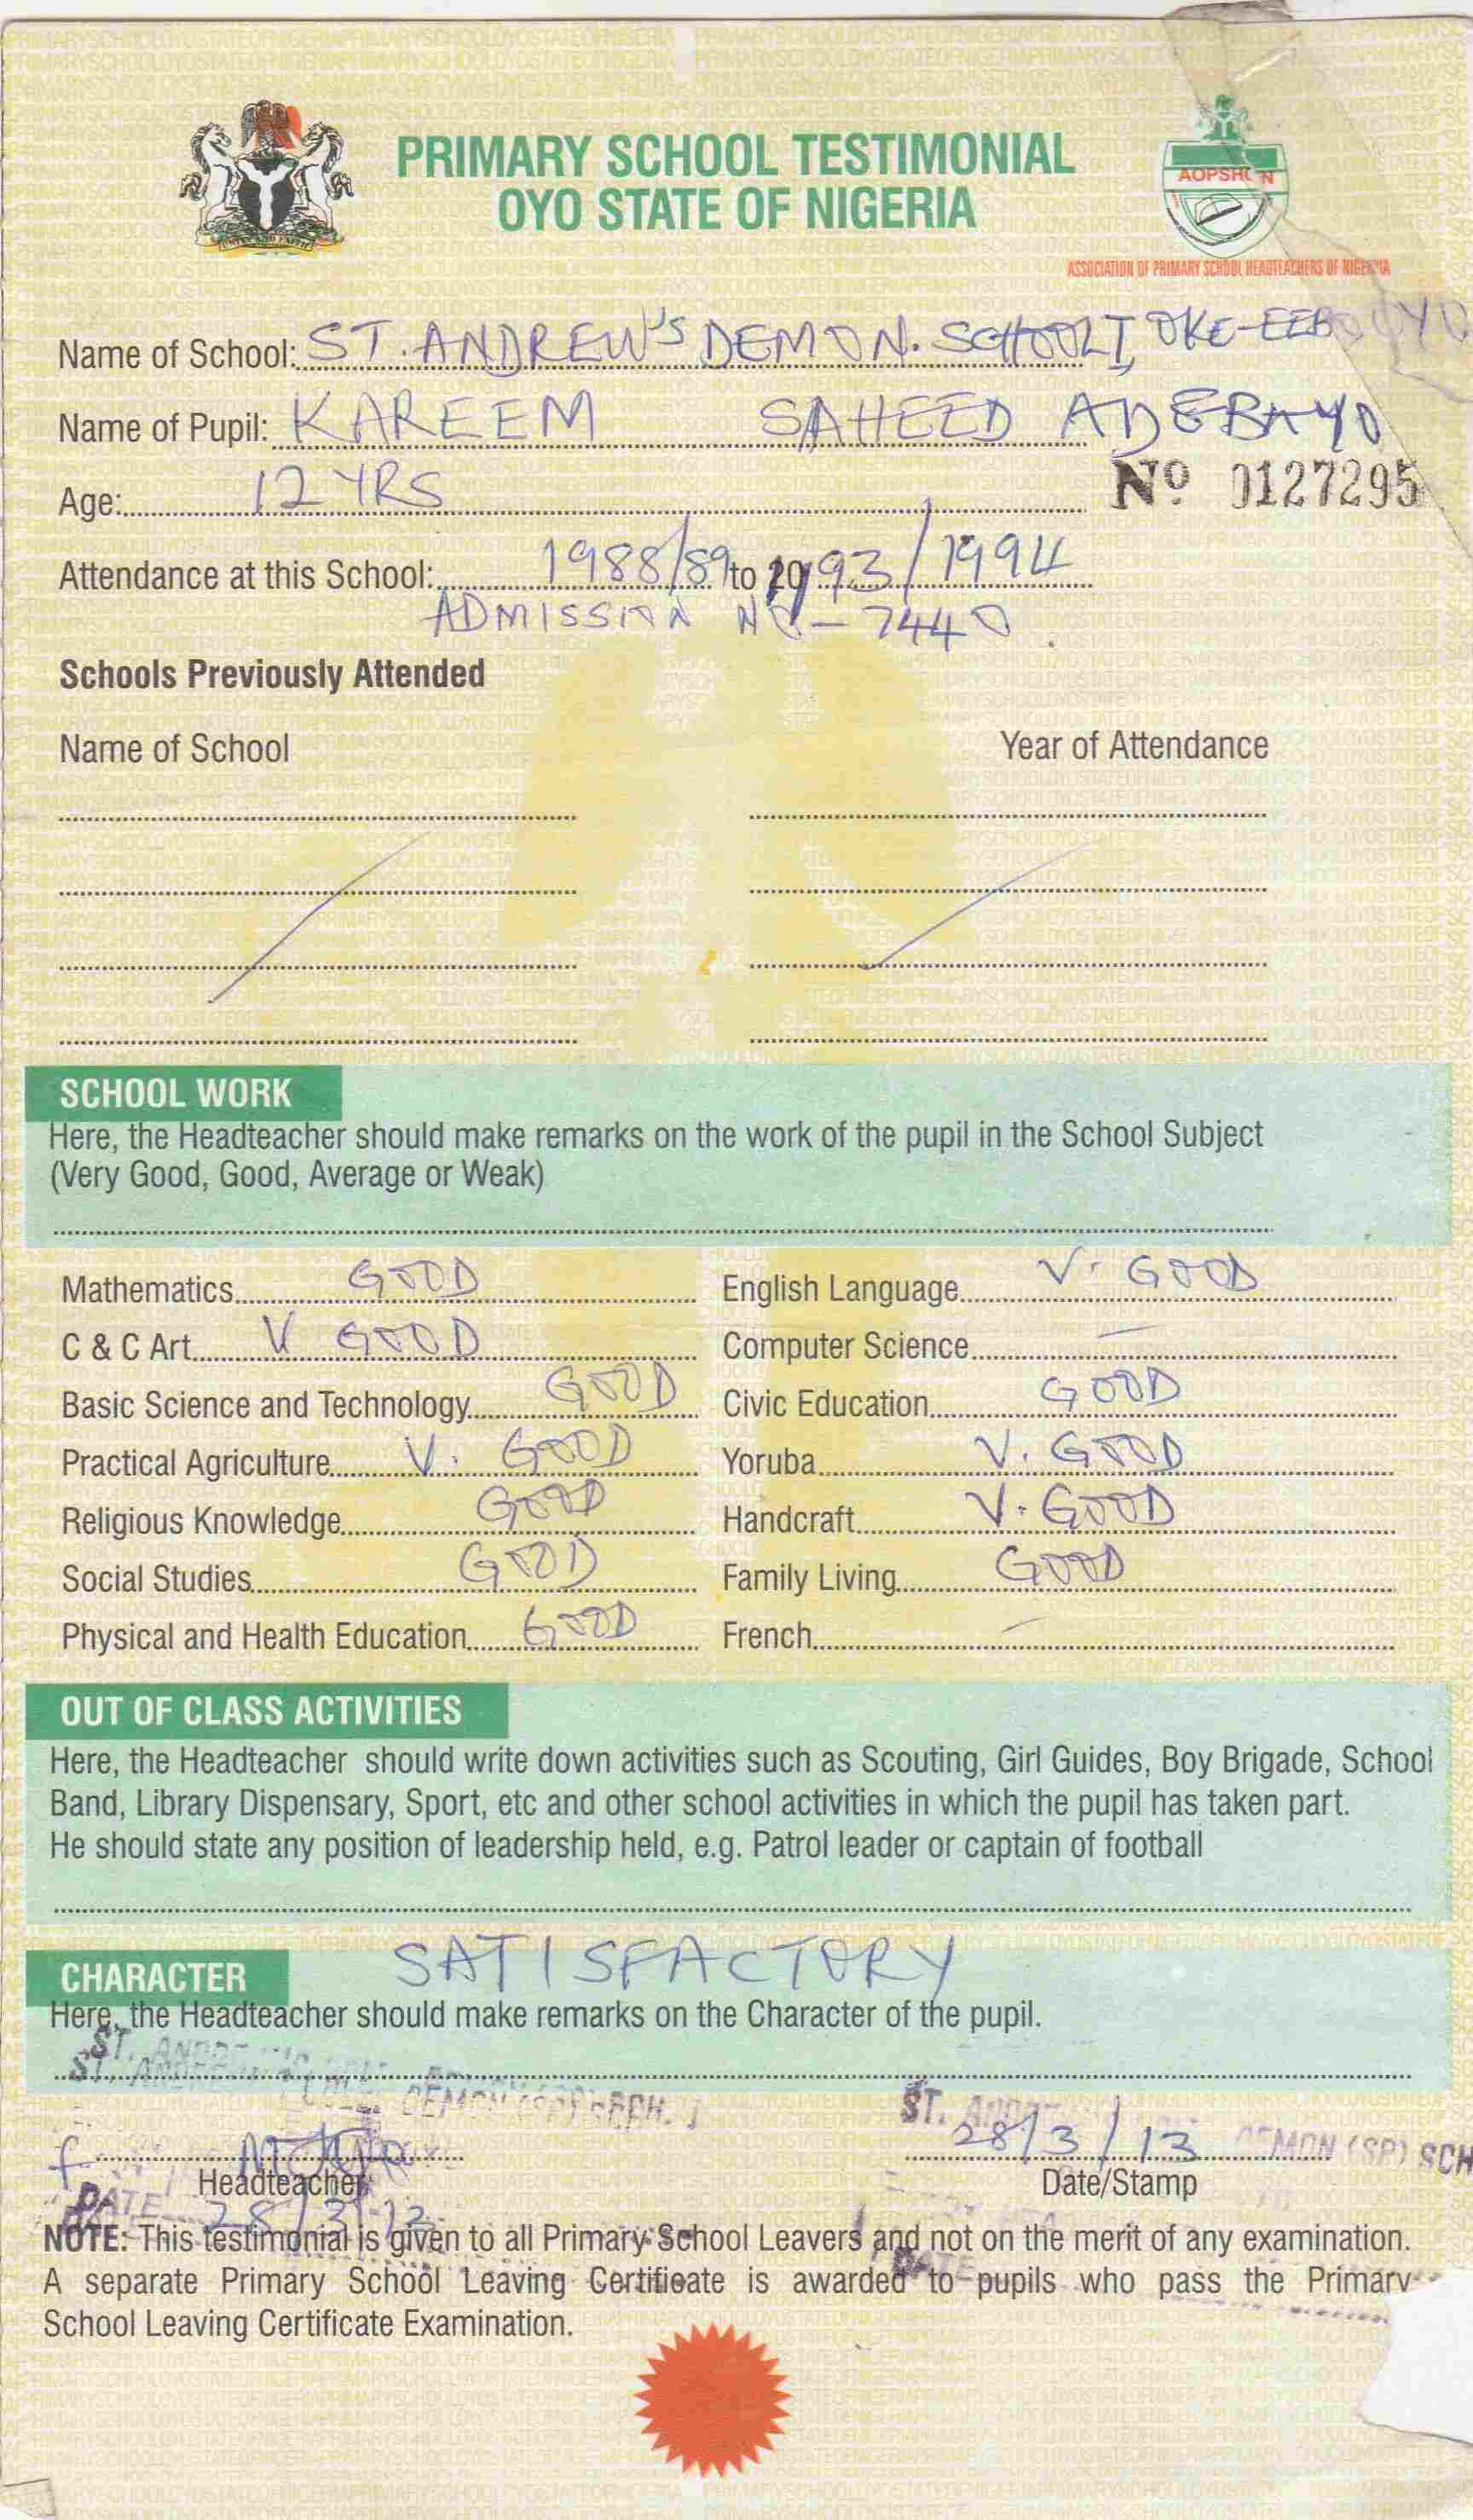 PRIMARY SCHOOL TESTIMONIAL
OYO STATE OF NIGERIA
AOPSHON
ASSOCIATION OF PRIMARY SCHOOL HEADTEACHERS OF NIGERIA
Name of School: ST. ANDREW'S DEMON. SCHOOL I, OKE-EEBO OYO
Name of Pupil: KAREEM SAHEED ADEBAYO
Age: 12 YRS
No 0127295
Attendance at this School: 1988/89 to 1993/1994
ADMISSION NO - 7440
Schools Previously Attended
Name of School Year of Attendance
SCHOOL WORK
Here, the Headteacher should make remarks on the work of the pupil in the School Subject
(Very Good, Good, Average or Weak)
Mathematics GOOD English Language V. GOOD
C & C Art V GOOD Computer Science —
Basic Science and Technology GOOD Civic Education GOOD
Practical Agriculture V. GOOD Yoruba V. GOOD
Religious Knowledge GOOD Handcraft V. GOOD
Social Studies GOOD Family Living GOOD
Physical and Health Education GOOD French —
OUT OF CLASS ACTIVITIES
Here, the Headteacher should write down activities such as Scouting, Girl Guides, Boy Brigade, School
Band, Library Dispensary, Sport, etc and other school activities in which the pupil has taken part.
He should state any position of leadership held, e.g. Patrol leader or captain of football
SATISFACTORY
CHARACTER
Here, the Headteacher should make remarks on the Character of the pupil.
ST. DEMON (SP) SCH. I
ST. DEMON (SP) SCH
28/3/13
Headteacher Date/Stamp
DATE 28/3/13
NOTE: This testimonial is given to all Primary School Leavers and not on the merit of any examination.
DATE
A separate Primary School Leaving Certificate is awarded to pupils who pass the Primary
School Leaving Certificate Examination.